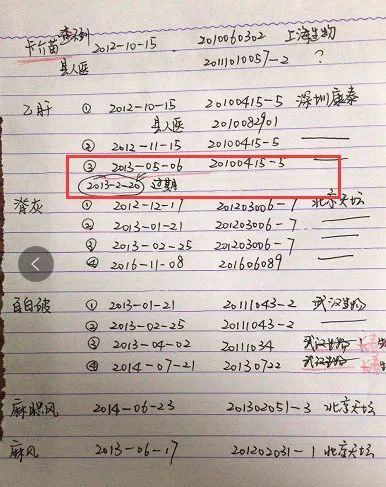 卡介苗 2012-10-15 2010060302 上海生物
县人医 2011010057-2 ?
乙肝 ① 2012-10-15 20100415-5 深圳康泰
县人医 2010082901
② 2012-11-15 20100415-5
③ 2013-05-06 20100415-5
2013-2-20 过期
脊灰 ① 2012-12-17 201203006-7 北京天坛
② 2013-01-21 201203006-7
③ 2013-02-25 201203006-7
④ 2016-11-08 201606089
百白破 ① 2013-01-21 20111043-2 武汉生物
② 2013-02-25 20111043-2
③ 2013-04-02 20111034 武汉生物 长春
④ 2014-07-21 20130722 武汉生物 长春
麻腮风 2014-06-23 201302051-3 北京天坛
麻风 2013-06-17 201202031-1 北京天坛